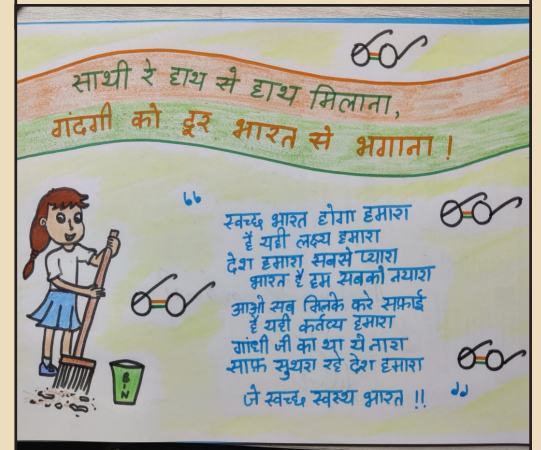 साथी रे हाथ से हाथ मिलाना,
गंदगी को दूर भारत से भगाना !
“
स्वच्छ भारत होगा हमारा
है यही लक्ष्य हमारा
देश हमारा सबसे प्यारा
भारत है हम सबको न्यारा
आओ सब मिलके करे सफ़ाई
है यही कर्तव्य हमारा
गांधी जी का था ये नारा
साफ़ सुथरा रहे देश हमारा
जे स्वच्छ स्वस्थ भारत !! ”
BIN